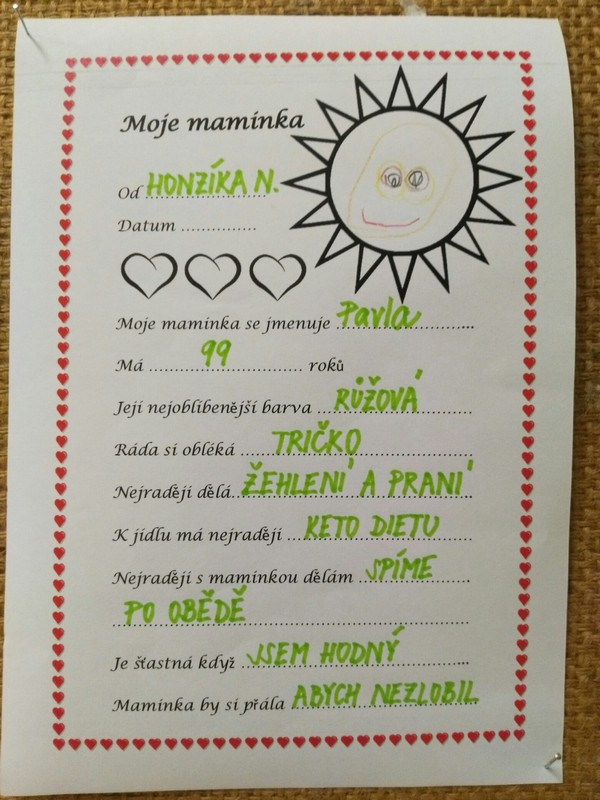 Moje maminka
Od HONZÍKA N.
Datum ..............
Moje maminka se jmenuje Pavla
Má 99 roků
Její nejoblíbenější barva RŮŽOVÁ
Ráda si obléká TRIČKO
Nejraději dělá ŽEHLENÍ A PRANÍ
K jídlu má nejraději KETO DIETU
Nejraději s maminkou dělám SPÍME
PO OBĚDĚ
Je šťastná když JSEM HODNÝ
Maminka by si přála ABYCH NEZLOBIL